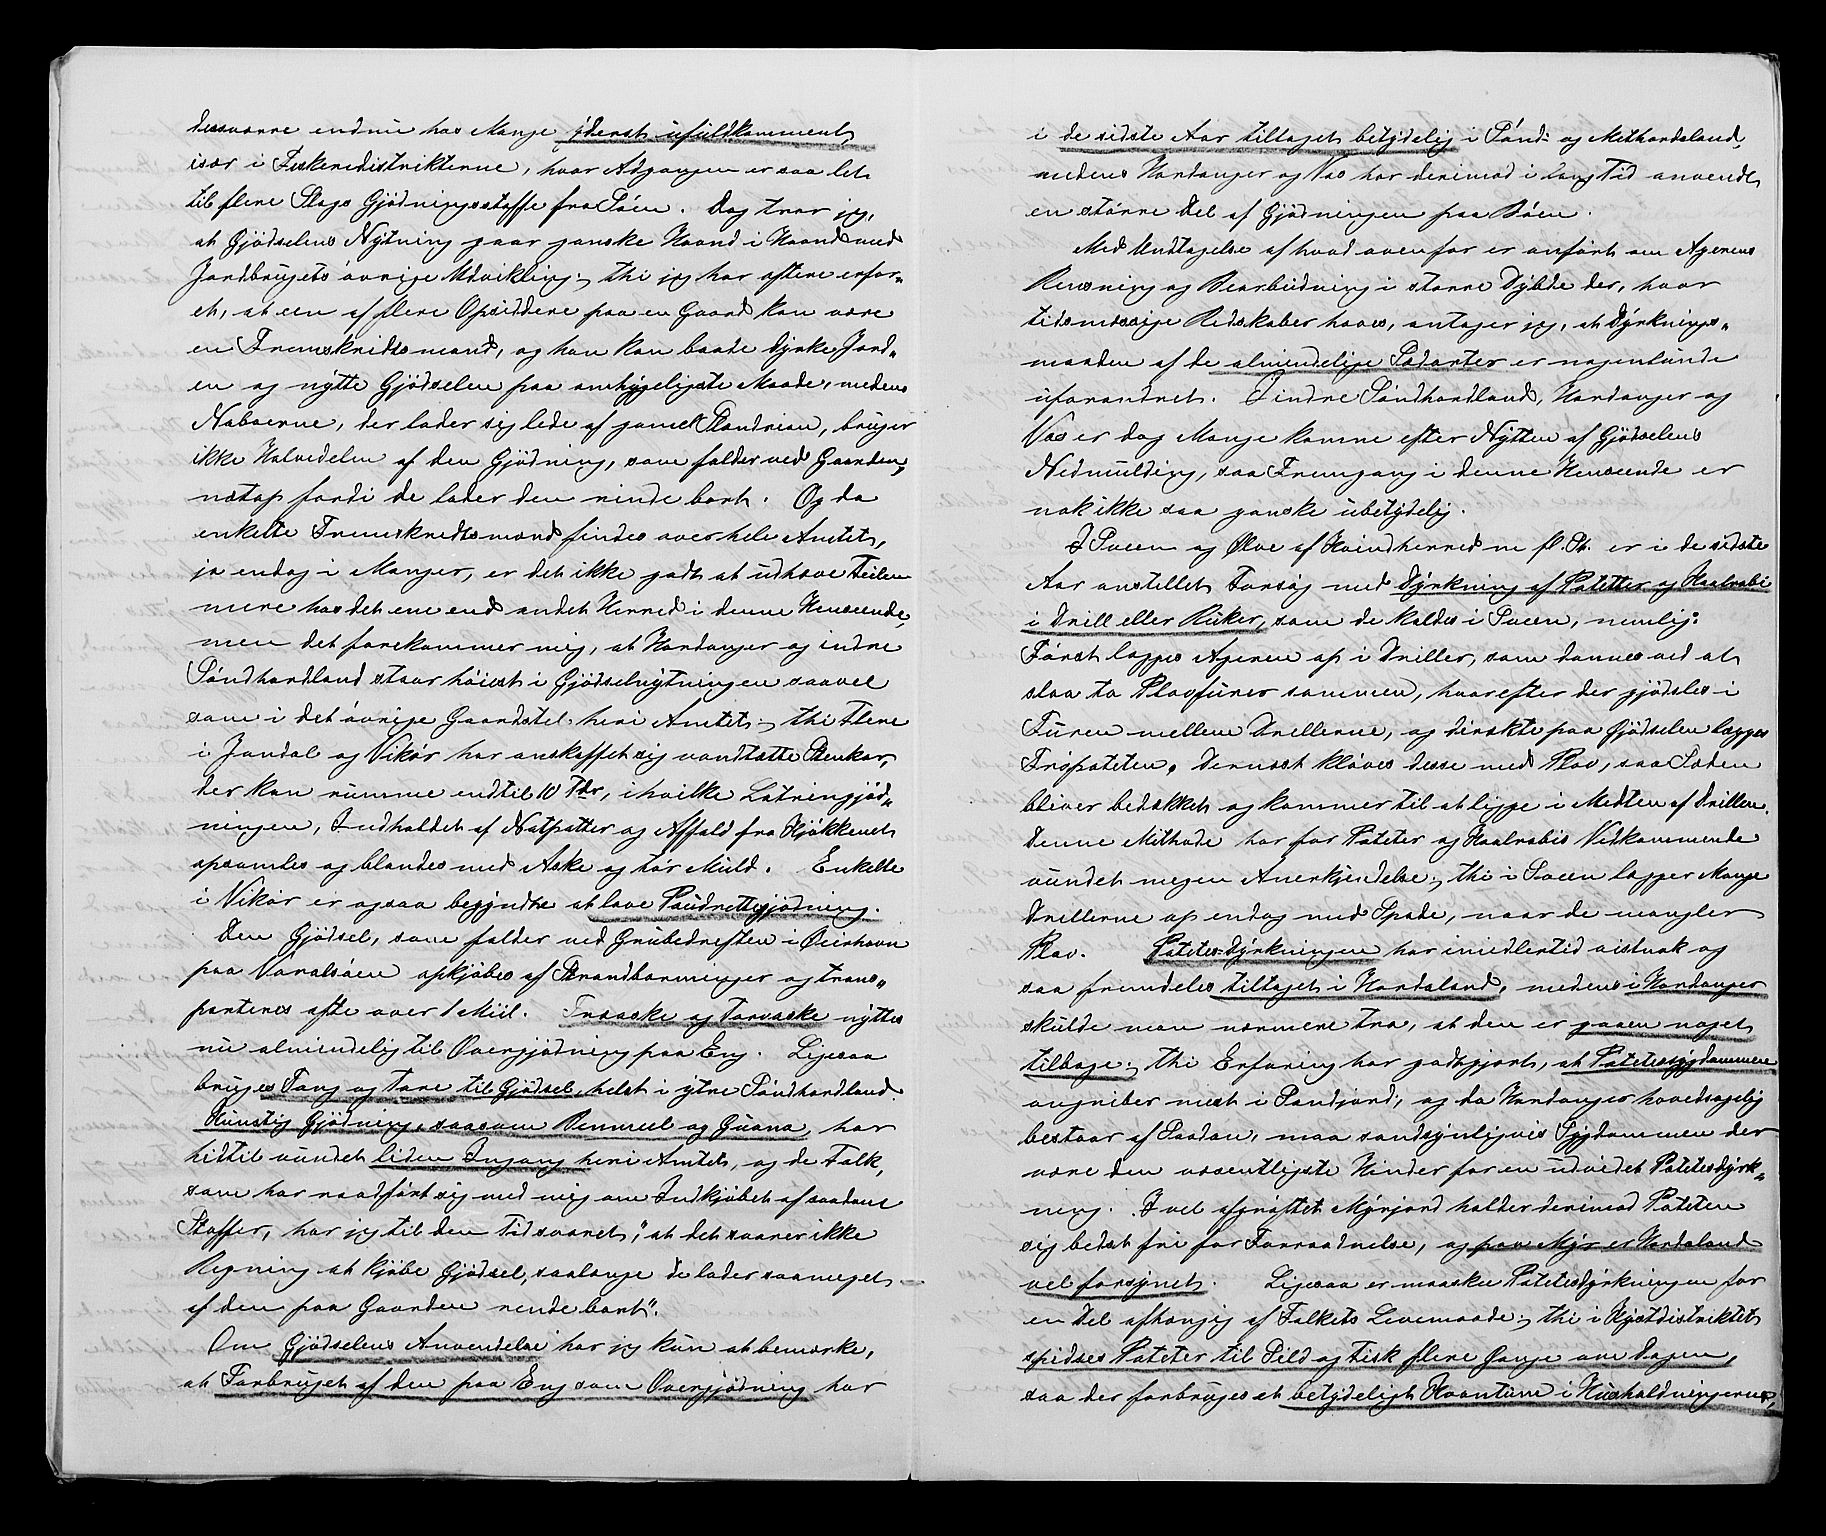 desværre endnu hos Mange yderst ufuldkomment,
især i Fiskeridistrikterne, hvor Adgangen er saa let
til flere Slags Gjødningsstoffe fra Søen. Dog tror jeg,
at Gjødselens Nytning gaar ganske Haand i Haand med
Jordbrugets øvrige Udvikling; thi jeg har oftere erfar„
et, at een af flere Opsiddere paa en Gaard kan være
en Fremskridtsmand, og han kan baade dyrke Jord„
en og nytte Gjødselen paa omhyggeligste Maade, medens
Naboerne, der lader sig lede af gamel Slendrian, bruger
ikke Halvedelen af den Gjødning, som falder ved Gaarden,
netop fordi de lader den rinde bort. Og da
enkelte Fremskridtsmænd findes over hele Amtet,
ja endog i Manger, er det ikke godt at udhæve Feilen
mere hos det ene end andet Herred i denne Henseende,
men det forekommer mig, at Hardanger og indre
Søndhordland staar høiest i Gjødselnytningen saavel
som i det øvrige Gaardstel heri Amtet; thi Flere
i Jondal og Vikør har anskaffet sig vandtætte Stenkar,
der kan rumme endtil 10 Tdr, i hvilke Latringjød„
ningen, Indholdet af Natpotter og Affald fra Kjøkkenet
opsamles og blandes med Aske og tør Muld. Enkelte
i Vikør er ogsaa begyndte at lave Poudrettegjødning.
Den Gjødsel, som falder ved Grubedriften i Ølerhavn
paa Varalsøen opkjøbes af Strandbarminger og trans„
porteres ofte over 1 Miil. Træaske og Torvaske nyttes
nu almindelig til Overgjødning paa Eng. Ligesaa
bruges Tang og Tare til Gjødsel, helst i ytre Søndhordland.
Kunstig Gjødning, saasom Benmeel og Guano, har
hidtil vundet liden Ingang heri Amtet, og de Folk,
som har raadført sig med mig om Indkjøbet af saadane
Stoffer, har jeg til den Tid svaret, "at det svarer ikke
Regning at kjøbe Gjødsel, saalænge de lader saameget
af den paa Gaarden rende bort".
Om Gjødselens Anvendelse har jeg kun at bemærke,
at Forbruget af den paa Eng som Overgjødning har
i de sidste Aar tiltaget betydelig i Sønd- og Mithordaland,
medens Hardanger og Vos har derimod i lang Tid anvendt
en større Del af Gjødningen paa Bøen.
Med Undtagelse af hvad ovenfor er anført om Agerens
Rensning og Bearbeidning i større Dybde der, hvor
tidsmæssige Redskaber haves, antager jeg, at Dyrknings„
maaden af de almindelige Sædarter er nogenlunde
uforandret. I indre Søndhordland, Hardanger og
Vos er dog Mange komne efter Nytten af Gjødselens
Nedmulding, saa Fremgang i denne Henseende er
nok ikke saa ganske ubetydelig.
I Sveen og Ølve af Kvindherred m fl. St. er i de sidste
Aar anstillet Forsøg med Dyrkning af Poteter og Kaalrabi
i Drill eller Ruker, som de kaldes i Sveen, nemlig:
Først lægges Ageren op i Driller, som dannes ved at
slaa to Plovfurer sammen, hvorefter der gjødsles i
Furen mellem Drillerne, og direkte paa Gjødselen lægges
Frøpoteten. Dernæst kløves disse med Plov, saa Sæden
bliver bedækket og kommer til at ligge i Midten af Drillen.
Denne Methode har for Poteter og Kaalrabis Vedkommende
vundet megen Anerkjendelse; thi i Sveen lægger Mange
Drillerne op endog med Spade, naar de mangler
Plov. Potetesdyrkningen har imidlertid vistnok og
saa fremdeles tiltaget i Hordaland, medens i Hardanger
skulde man nærmere tro, at den er gaaen noget
tilbage; thi Erfaring har godtgjort, at Potetessygdommene
angriber mest i Sandjord, og da Hardanger hovedsagelig
bestaar af Saadan, maa sandsynligvis Sygdommen der
være den væsentligste Hinder for en udvidet Potetesdyrk„
ning. I vel afgrøftet Myrjord holder derimod Poteten
sig bedst fri for Forraadnelse, og paa Myr er Hordaland
vel forsynet. Ligesaa er maaskee Potetesdyrkningen for
en Del afhængig af Folkets Levemaade; thi i Kystdistriktet
spises Poteter til Sild og Fisk flere Gange om Dagen,
saa der forbruges et betydeligt Kvantum i Husholdningerne,